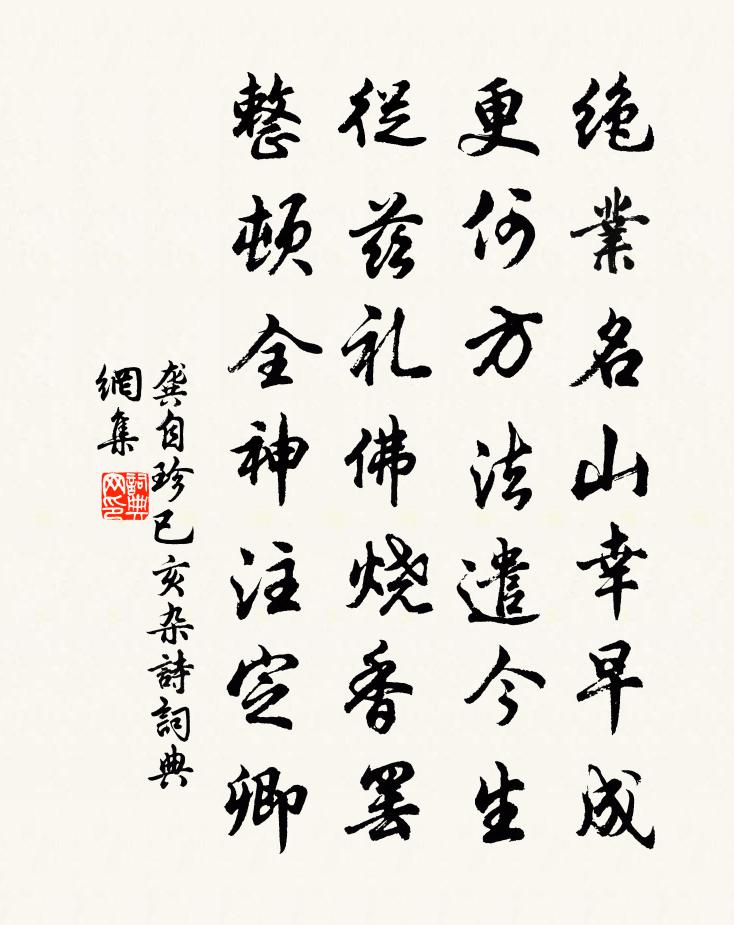 绝業名山幸早成
更何方法遣今生
從兹礼佛烧香罢
整頓全神注定卿
龚自珍己亥杂詩詞典
網集
詞典
网印